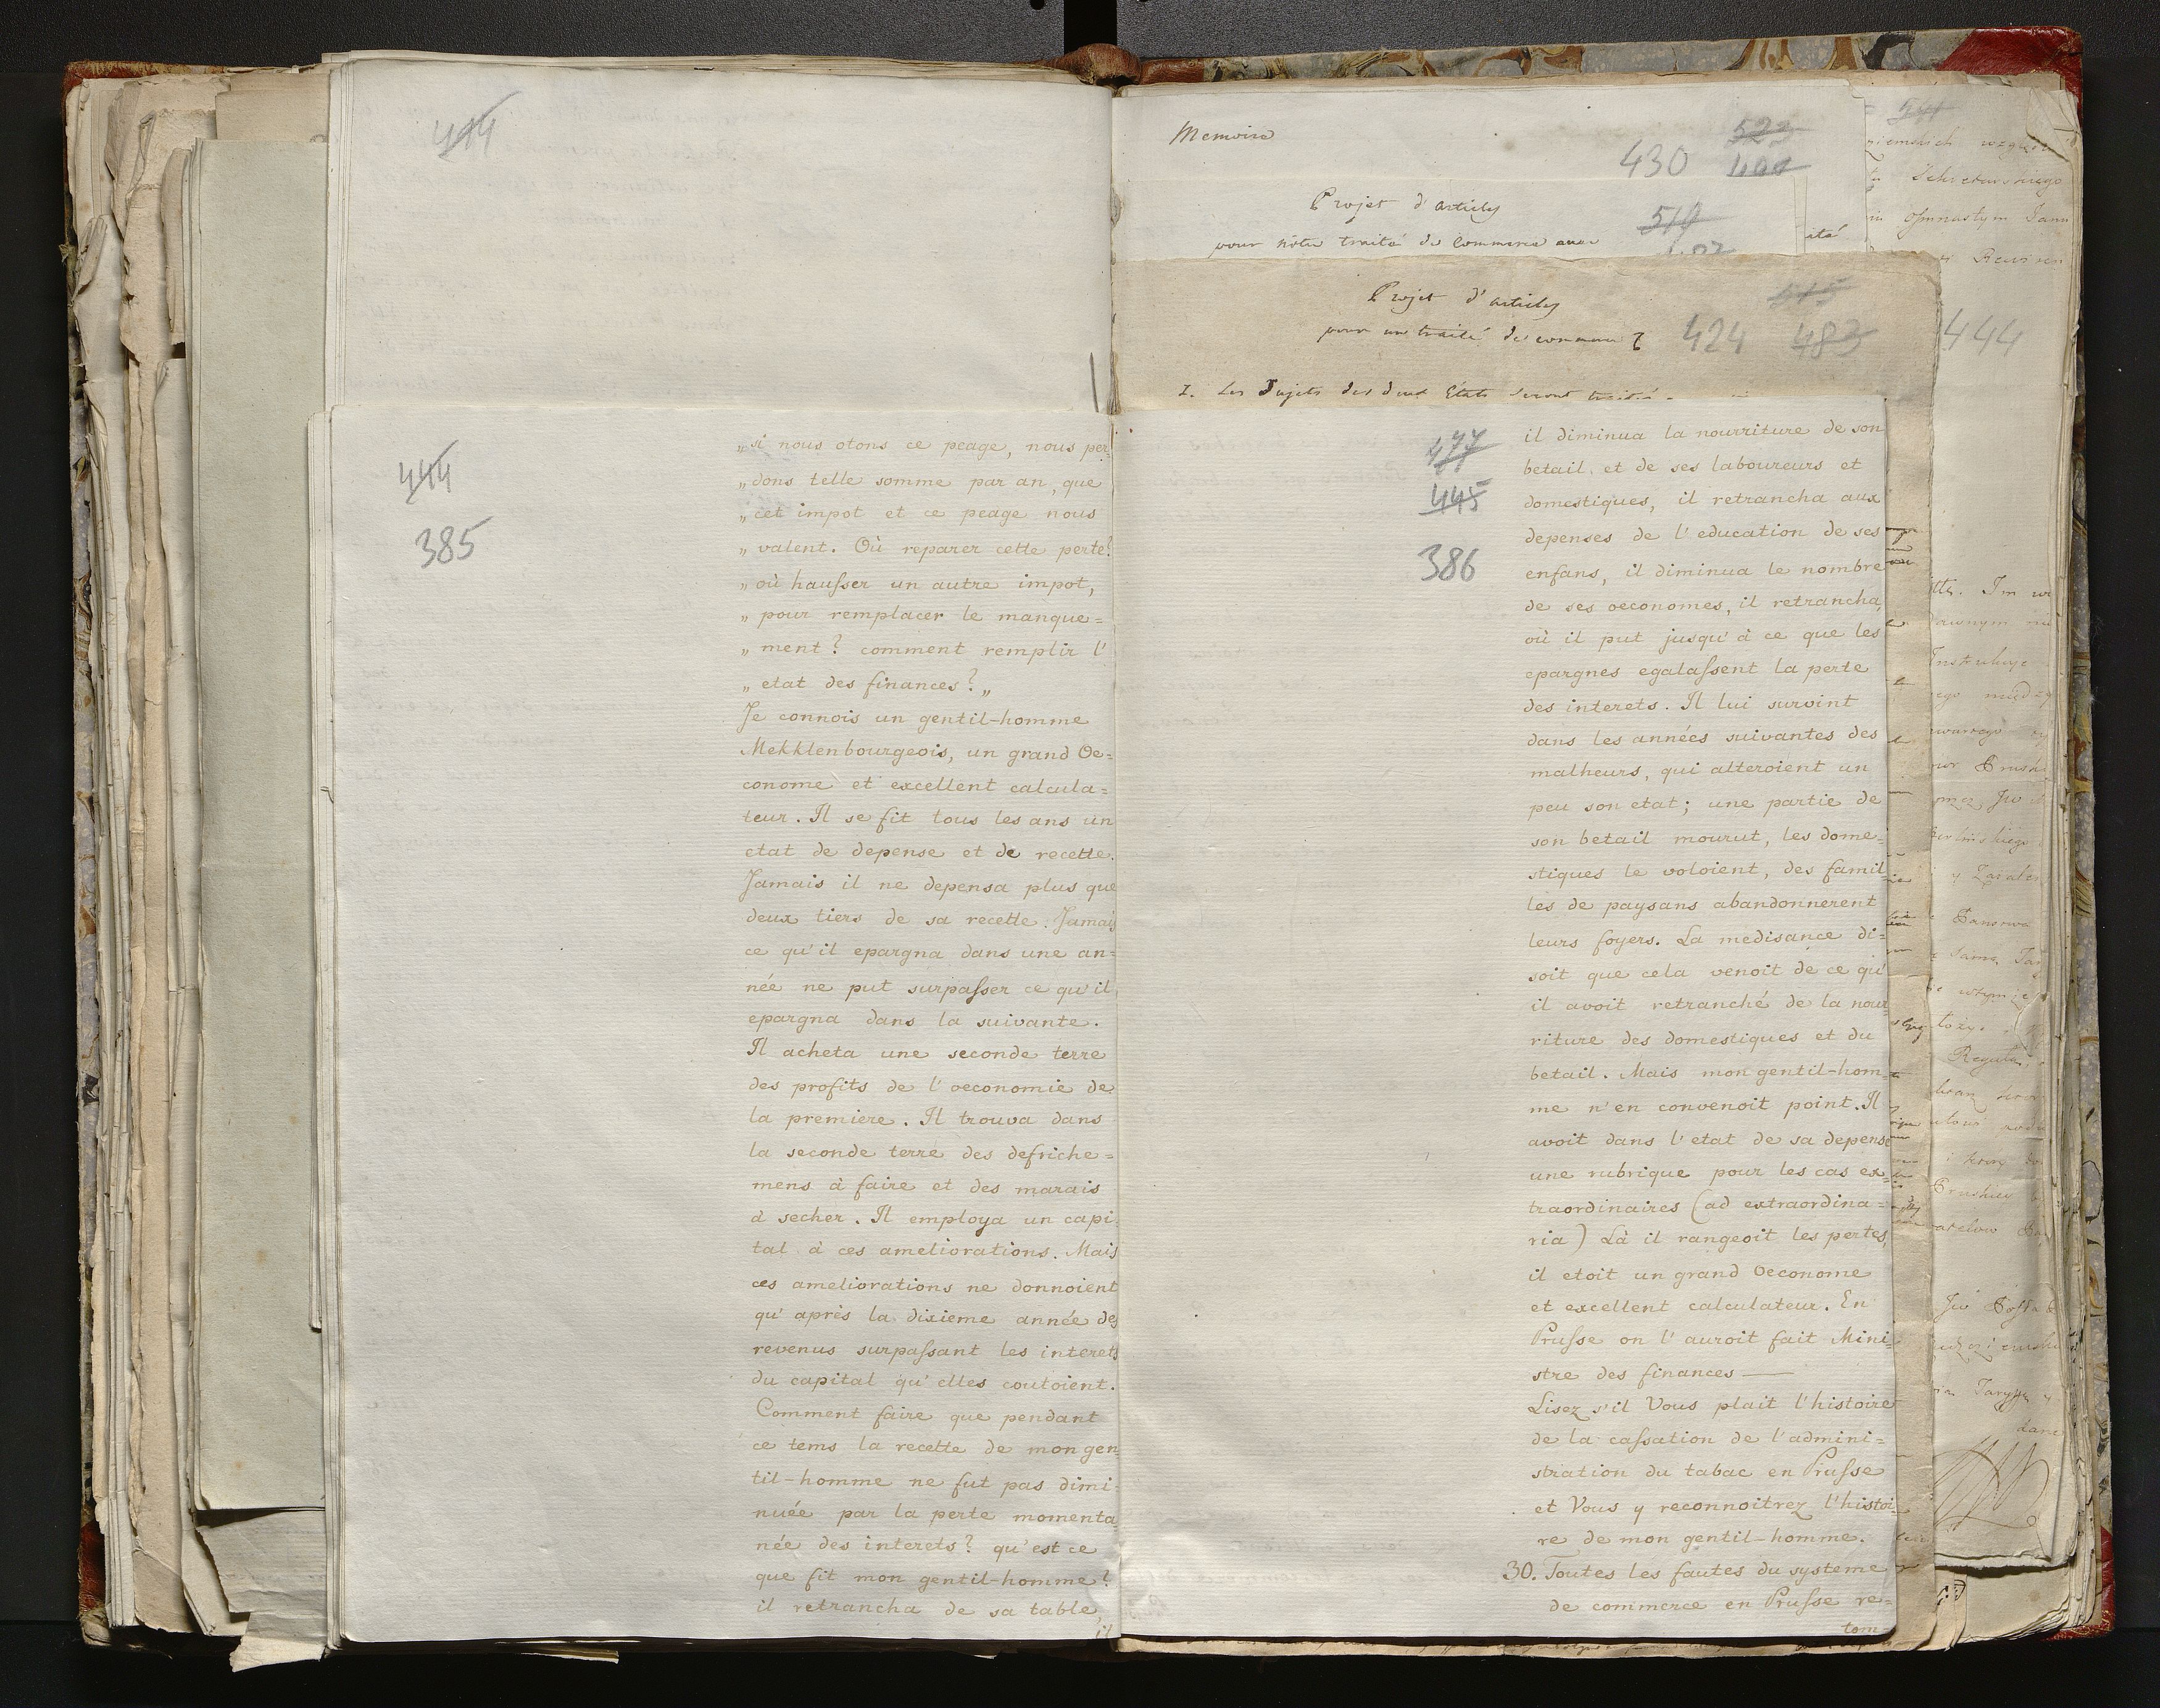 444
444
385
„si nous otons ce peage, nous per=
„dons telle somme par an, que
„cet impot et ce peage nous
„valent. Où reparer cette perte?
„où hausser un autre impot,
„pour remplacer le manque=
„ment? comment remplir l'
„etat des finances?„
Je connois un gentil-homme
Mekklenbourgeois, un grand Oe=
conome et excellent calcula=
teur. Il se fit tous les ans un
etat de depense et de recette.
Jamais il ne depensa plus que
deux tiers de sa recette. Jamais
ce qu'il epargna dans une an=
née ne put surpasser ce qu'il
epargna dans la suivante.
Il acheta une seconde terre
des profits de l'oeconomie de
la premiere. Il trouva dans
la seconde terre des defriche=
mens à faire et des marais
à secher. Il employa un capi=
tal à ces ameliorations. Mais
ces ameliorations ne donnoient
qu'après la dixieme année des
revenus surpassant les interets
du capital qu'elles coutoient.
Comment faire que pendant
ce tems la recette de mon gen
til-homme ne fut pas dimi=
nuée par la perte momenta
née des interets? qu'est ce
que fit mon gentil-homme?
il retrancha de sa table,
il
Memoire
523
430
Projet d'articles
519
pour notre traité de commerce avec
Projet d'articles
515
pour un traité de commerce
424 483
1. Les Sujets des deux Etats seront
477
445
386
il diminua la nourriture de son
betail et de ses laboureurs et
domestiques, il retrancha aux
depenses de l'education de ses
enfans, il diminua le nombre
de ses oeconomes, il retrancha,
où il put jusqu'à ce que les
epargnes egalassent la perte
des interets. Il lui survint
dans les années suivantes des
malheurs, qui alteroient un
peu son etat; une partie de
son betail mourut, les dome=
stiques le voloient, des famil=
les de paysans abandonnerent
leurs foyers. La medisance di=
soit que cela venoit de ce qu'
il avoit retranché de la nour
riture des domestiques et du
betail. Mais mon gentil-hom=
me n'en convenoit point. Il
avoit dans l'etat de sa depense
une rubrique pour les cas ex=
traordinaires (ad extraordina=
ria) Là il rangeoit les pertes,
il etoit un grand Oeconome
et excellent calculateur. En
Prusse on l'auroit fait Mini=
stre des finances —
Lisez s'il Vous plait l'histoire
de la cassation de l'admini=
stration du tabac en Prusse
et Vous y reconnoitrez l'histoi=
re de mon gentil-homme.
30. Toutes les fautes du systeme
de commerce en Prusse re=
tom=
444